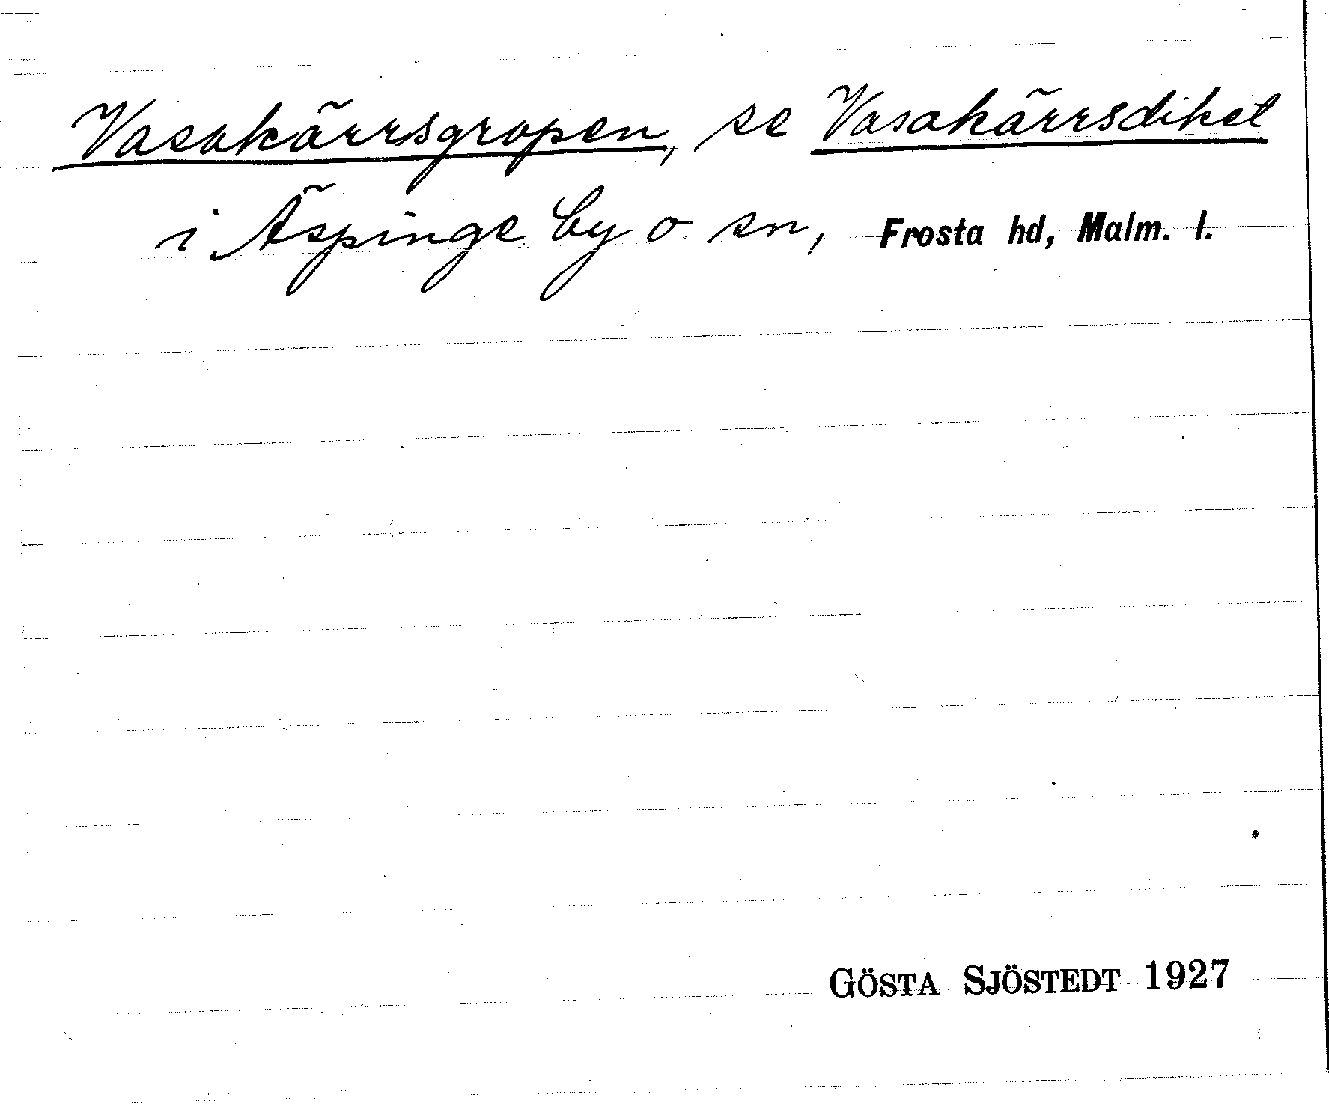 Vasakärrsgropen, se Vasakärrsdiket
i Äspinge by o sn, Frosta hd, Malm. l.
GÖSTA SJÖSTEDT 1927